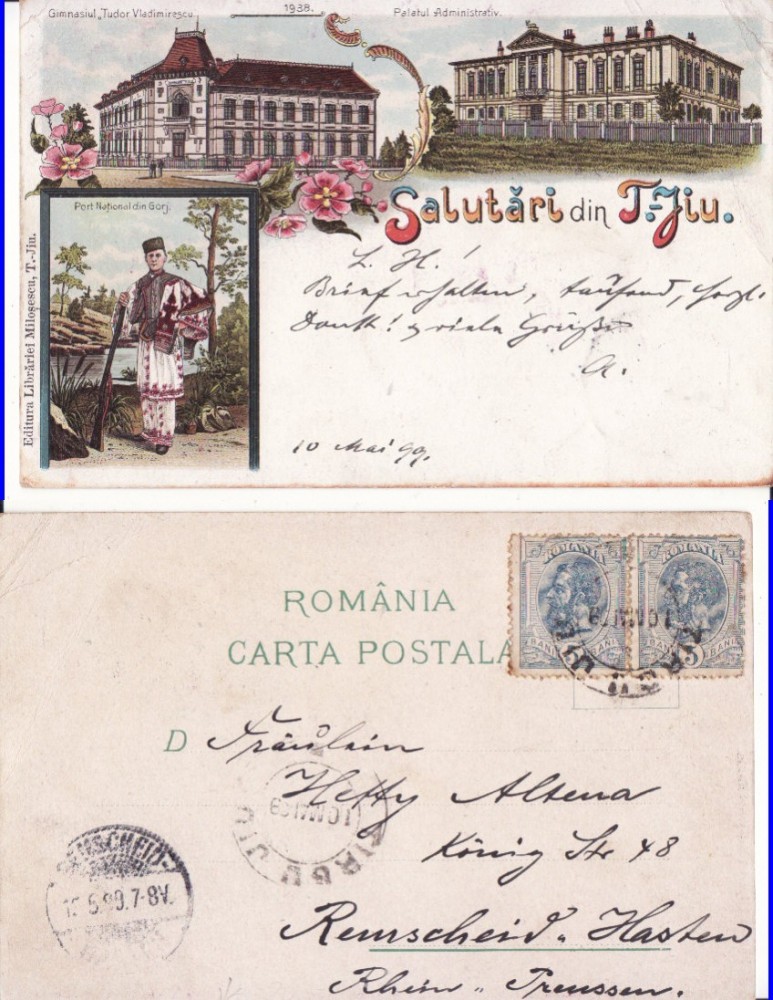 Gimnasiul „Tudor Vladimirescu.
1938.
Palatul Administrativ.
Salutări din T.-Jiu.
Port Naţional din Gorj.
Editura Librăriei Miloşescu, T.-Jiu.
L. H.!
Brief erhalten, tausend, herzl.
Dank! & viele Grüße
A.
10 Mai 99.
ROMANIA
ROMANIA
BANI BANI
BANI 5 BANI
ROMÂNIA
CARTA POSTALA
TIRGU JIU
10 MAI 99
D Fräulein
Hetty Altena
König Str 48
Remscheid-Hasten
Rhein-Preussen.
TIRGU JIU
10 MAI 99
REMSCHEID
.5.99.7-8V.